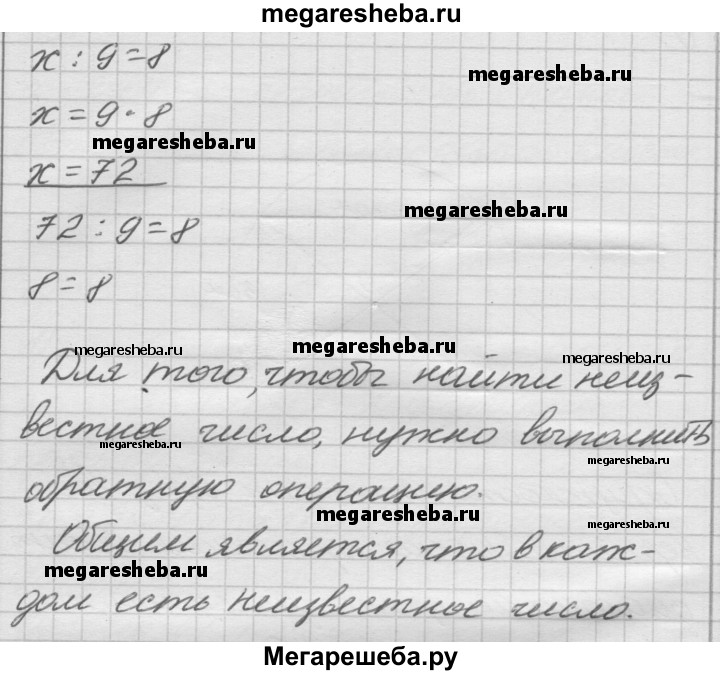 megaresheba.ru
x : 9 = 8
megaresheba.ru
x = 9 · 8
megaresheba.ru
x = 72
megaresheba.ru
72 : 9 = 8
8 = 8
megaresheba.ru megaresheba.ru megaresheba.ru
Для того, чтобы найти неиз-
вестное число, нужно выполнить
megaresheba.ru megaresheba.ru
обратную операцию.
megaresheba.ru megaresheba.ru
Общим является, что в каж-
megaresheba.ru
дом есть неизвестное число.
Мегарешеба.ру